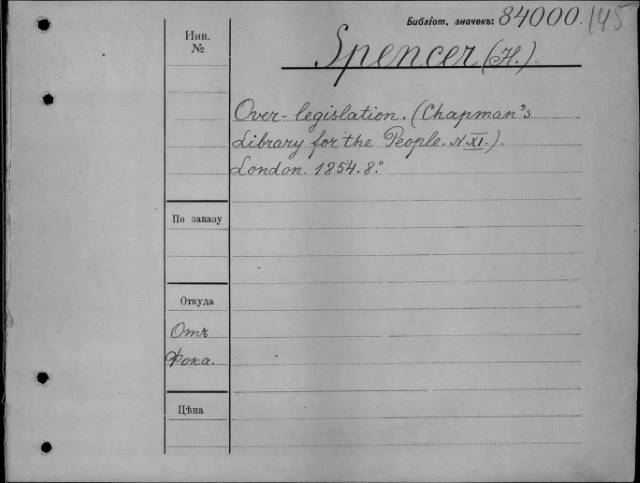 Библіот. значекъ: 84000./145
Инв.
№
Spencer (H.).
Over-legislation. (Chapman's
Library for the People. N XI.).
London. 1854. 8º
По заказу
Откуда
Отъ
Фока.
Цѣна